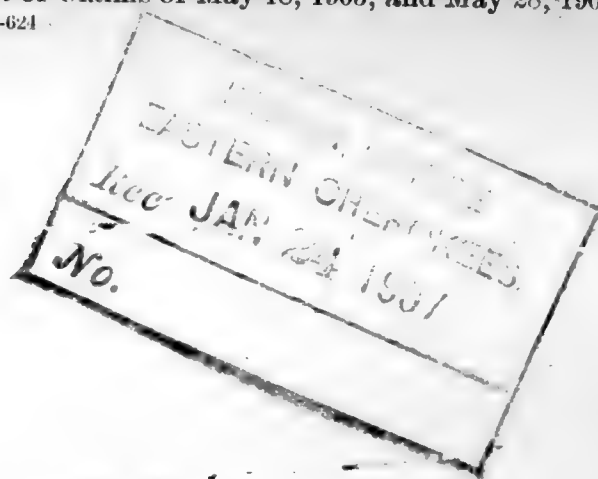 of May 18, 1905, and May 28, 190
-624
EASTERN CHEROKEES.
Rec JAN 24 1907
No.